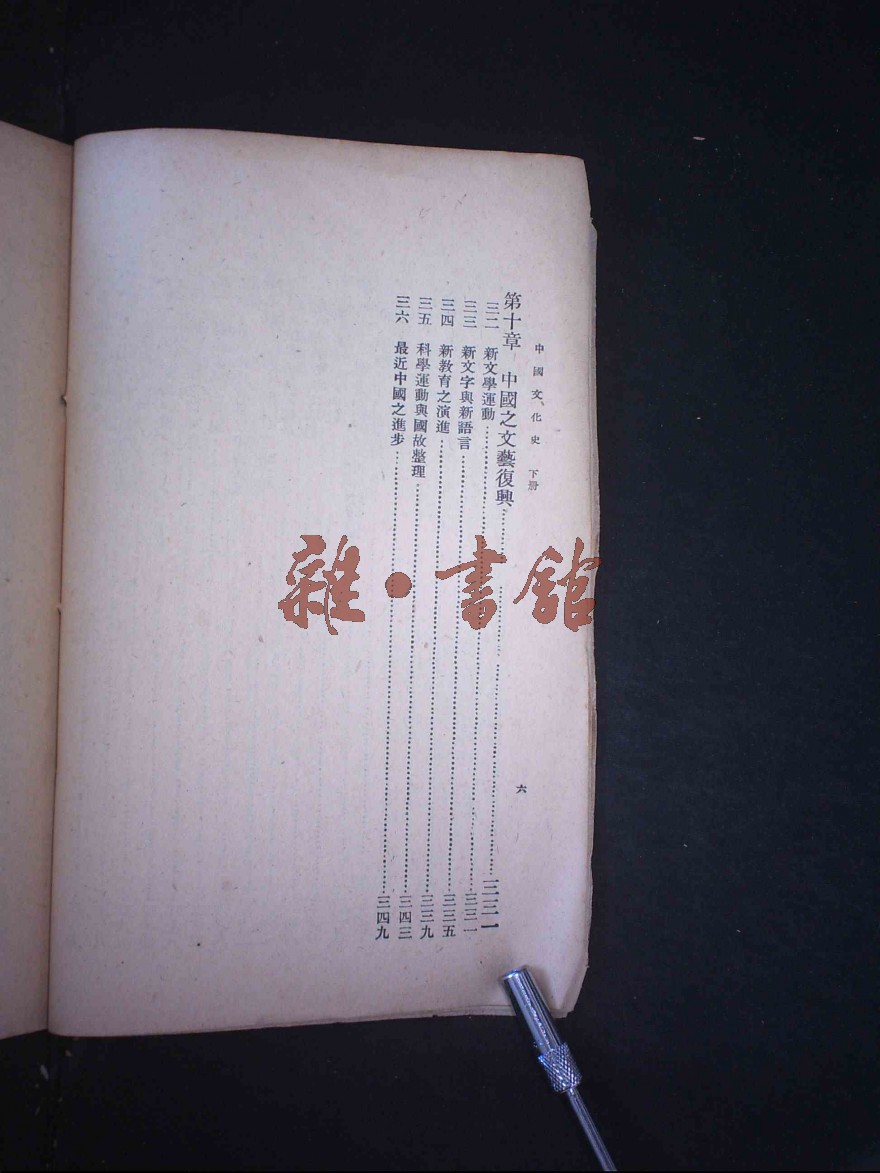 中國文化史 下册
六
第十章 中國之文藝復興……三三一
三二 新文學運動……三三一
三三 新文字與新語言……三三五
三四 新教育之演進……三三九
三五 科學運動與國故整理……三四三
三六 最近中國之進步……三四九
雜·書館